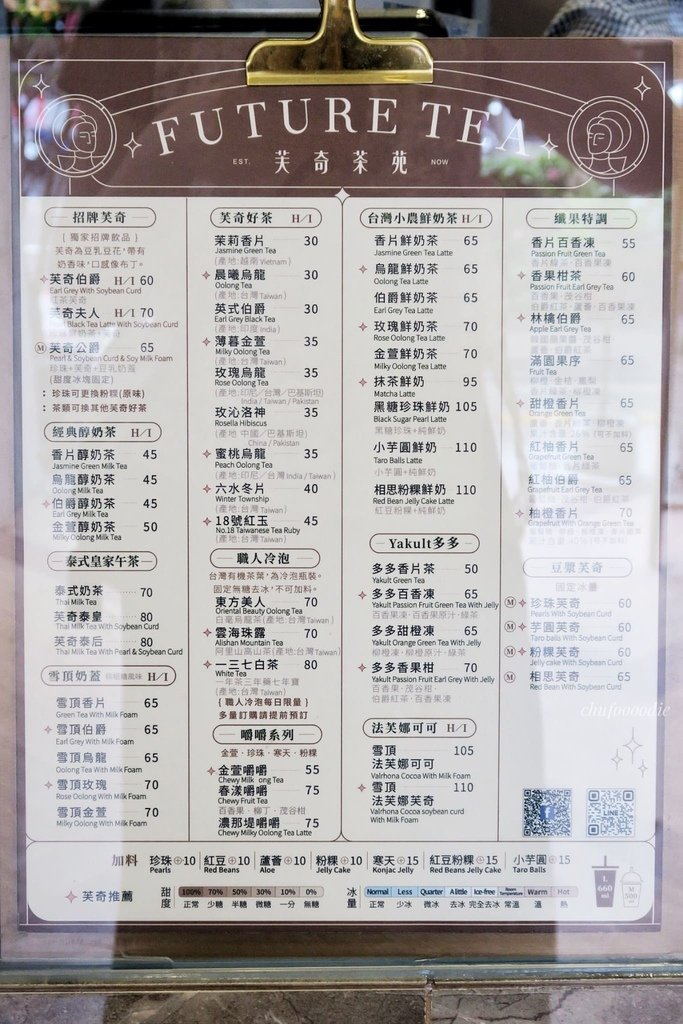 FUTURE TEA
EST. 芙奇茶苑 NOW
招牌芙奇
{ 獨家招牌飲品 }
芙奇為豆乳豆花,帶有
奶香味,口感像布丁。
芙奇伯爵 H/I 60
Earl Grey With Soybean Curd
紅茶芙奇
芙奇夫人 H/I 70
Black Tea Latte With Soybean Curd
M 芙奇公爵 65
Pearl & Soybean Curd & Soy Milk Foam
珍珠+芙奇+豆乳奶蓋
(甜度冰塊固定)
:珍珠可更換粉粿(原味)
:茶類可換其他芙奇好茶
經典醇奶茶 H/I
香片醇奶茶 45
Jasmine Green Milk Tea
烏龍醇奶茶 45
Oolong Milk Tea
伯爵醇奶茶 45
Earl Grey Milk Tea
金萱醇奶茶 50
Milky Oolong Milk Tea
泰式皇家午茶
泰式奶茶 70
Thai Milk Tea
芙奇泰皇 80
Thai Milk Tea With Soybean Curd
芙奇泰后 80
Thai Milk Tea With Pearl & Soybean Curd
雪頂奶蓋 H/I
雪頂香片 65
Green Tea With Milk Foam
雪頂伯爵 65
Earl Grey With Milk Foam
雪頂烏龍 65
Oolong Tea With Milk Foam
雪頂玫瑰 70
Rose Oolong With Milk Foam
雪頂金萱 70
Milky Oolong With Milk Foam
芙奇好茶 H/I
茉莉香片 30
Jasmine Green Tea
(產地:越南 Vietnam)
晨曦烏龍 30
Oolong Tea
(產地:台灣 Taiwan)
英式伯爵 30
Earl Grey Black Tea
(產地:印度 India)
薄暮金萱 35
Milky Oolong Tea
(產地:台灣 Taiwan)
玫瑰烏龍 35
Rose Oolong Tea
(產地:印尼/台灣/巴基斯坦)
India / Taiwan / Pakistan
玫沁洛神 35
Rosella Hibiscus
(產地 中國/巴基斯坦)
China / Pakistan
蜜桃烏龍 35
Peach Oolong Tea
(產地:印尼/台灣 India / Taiwan)
六水冬片 40
Winter Township
(產地:台灣 Taiwan)
18號紅玉 45
No.18 Taiwanese Tea Ruby
(產地:台灣 Taiwan)
職人冷泡
台灣有機茶葉,為冷泡瓶裝。
固定無糖去冰,不可加料。
東方美人 70
Oriental Beauty Oolong Tea
白毫烏龍茶(產地:台灣 Taiwan)
雲海珠露 70
Alishan Mountain Tea
阿里山高山茶(產地:台灣 Taiwan)
一三七白茶 80
White Tea
一年茶三年藥七年寶
(產地:台灣 Taiwan)
{ 職人冷泡每日限量 }
多量訂購請提前預訂
嚼嚼系列
金萱・珍珠・寒天・粉粿
金萱嚼嚼 55
Chewy Milk ong Tea
春漾嚼嚼 75
Chewy Fruit Tea
百香果・柳丁・茂谷柑
濃那堤嚼嚼 75
Chewy Milky Oolong Tea Latte
台灣小農鮮奶茶 H/I
香片鮮奶茶 65
Jasmine Green Tea Latte
烏龍鮮奶茶 65
Oolong Tea Latte
伯爵鮮奶茶 65
Earl Grey Tea Latte
玫瑰鮮奶茶 70
Rose Oolong Tea Latte
金萱鮮奶茶 70
Milky Oolong Tea Latte
抹茶鮮奶 95
Matcha Latte
黑糖珍珠鮮奶 105
Black Sugar Pearl Latte
黑糖珍珠+純鮮奶
小芋圓鮮奶 110
Taro Balls Latte
小芋圓+純鮮奶
相思粉粿鮮奶 110
Red Bean Jelly Cake Latte
紅豆粉粿+純鮮奶
Yakult多多
多多香片茶 50
Yakult Green Tea
多多百香凍 65
Yakult Passion Fruit Green Tea With Jelly
百香果凍・百香果原汁・綠茶
多多甜橙凍 65
Yakult Orange Green Tea With Jelly
柳橙凍・柳橙原汁・綠茶
多多香果柑 70
Yakult Passion Fruit Earl Grey With Jelly
百香果・茂谷柑・
伯爵紅茶・百香果凍
法芙娜可可 H/I
雪頂 105
法芙娜可可
Valrhona Cocoa With Milk Foam
雪頂 110
法芙娜芙奇
Valrhona Cocoa soybean curd
With Milk Foam
纖果特調
香片百香凍 55
Passion Fruit Green Tea
香片綠茶・百香果凍
香果柑茶 60
Passion Fruit Earl Grey Tea
百香果・茂谷柑・
伯爵紅茶・蘆薈・百香果凍
林檎伯爵 65
Apple Earl Grey Tea
滿園果序 65
Fruit Tea
甜橙香片 65
Orange Green Tea
紅柚香片 65
Grapefruit Green Tea
紅柚伯爵 65
Grapefruit Earl Grey Tea
柚橙香片 70
Grapefruit With Orange Green Tea
豆漿芙奇
固定冰量
M 珍珠芙奇 60
Pearls With Soybean Curd
M 芋圓芙奇 60
Taro balls With Soybean Curd
M 粉粿芙奇 60
Jelly cake With Soybean Curd
M 相思芙奇 65
Red Bean With Soybean Curd
chufoooodie
LINE
加料 珍珠+10 紅豆+10 蘆薈+10 粉粿+10 寒天+15 紅豆粉粿+15 小芋圓+15
Pearls Red Beans Aloe Jelly Cake Konjac Jelly Red Beans Jelly Cake Taro Balls
芙奇推薦 甜度 100% 70% 50% 30% 10% 0% 冰量 Normal Less Quarter A little Ice-free Room Temperature Warm Hot
正常 少糖 半糖 微糖 一分 無糖 正常 少冰 微冰 去冰 完全去冰 常溫 溫 熱
L 660 ml M 500 ml